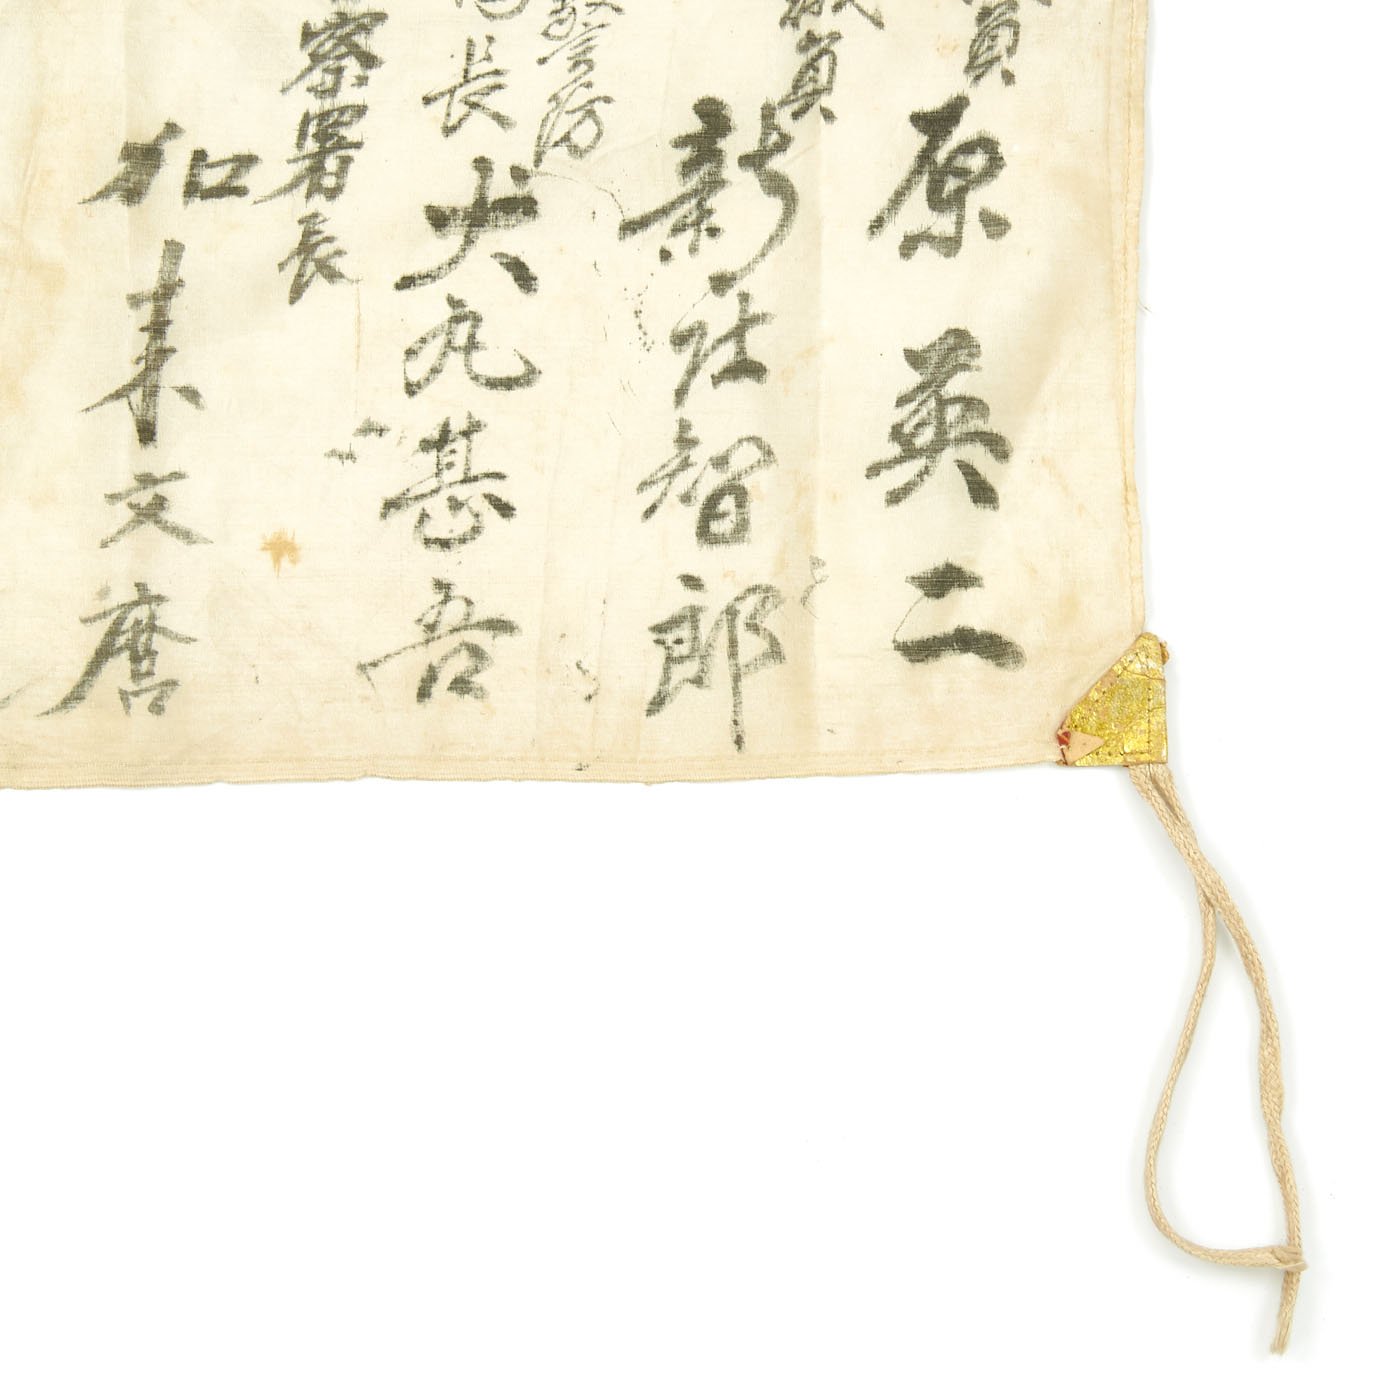 員
原英二
職員
新社智郎
警防
長
大丸甚吾
察署長
和来文麿